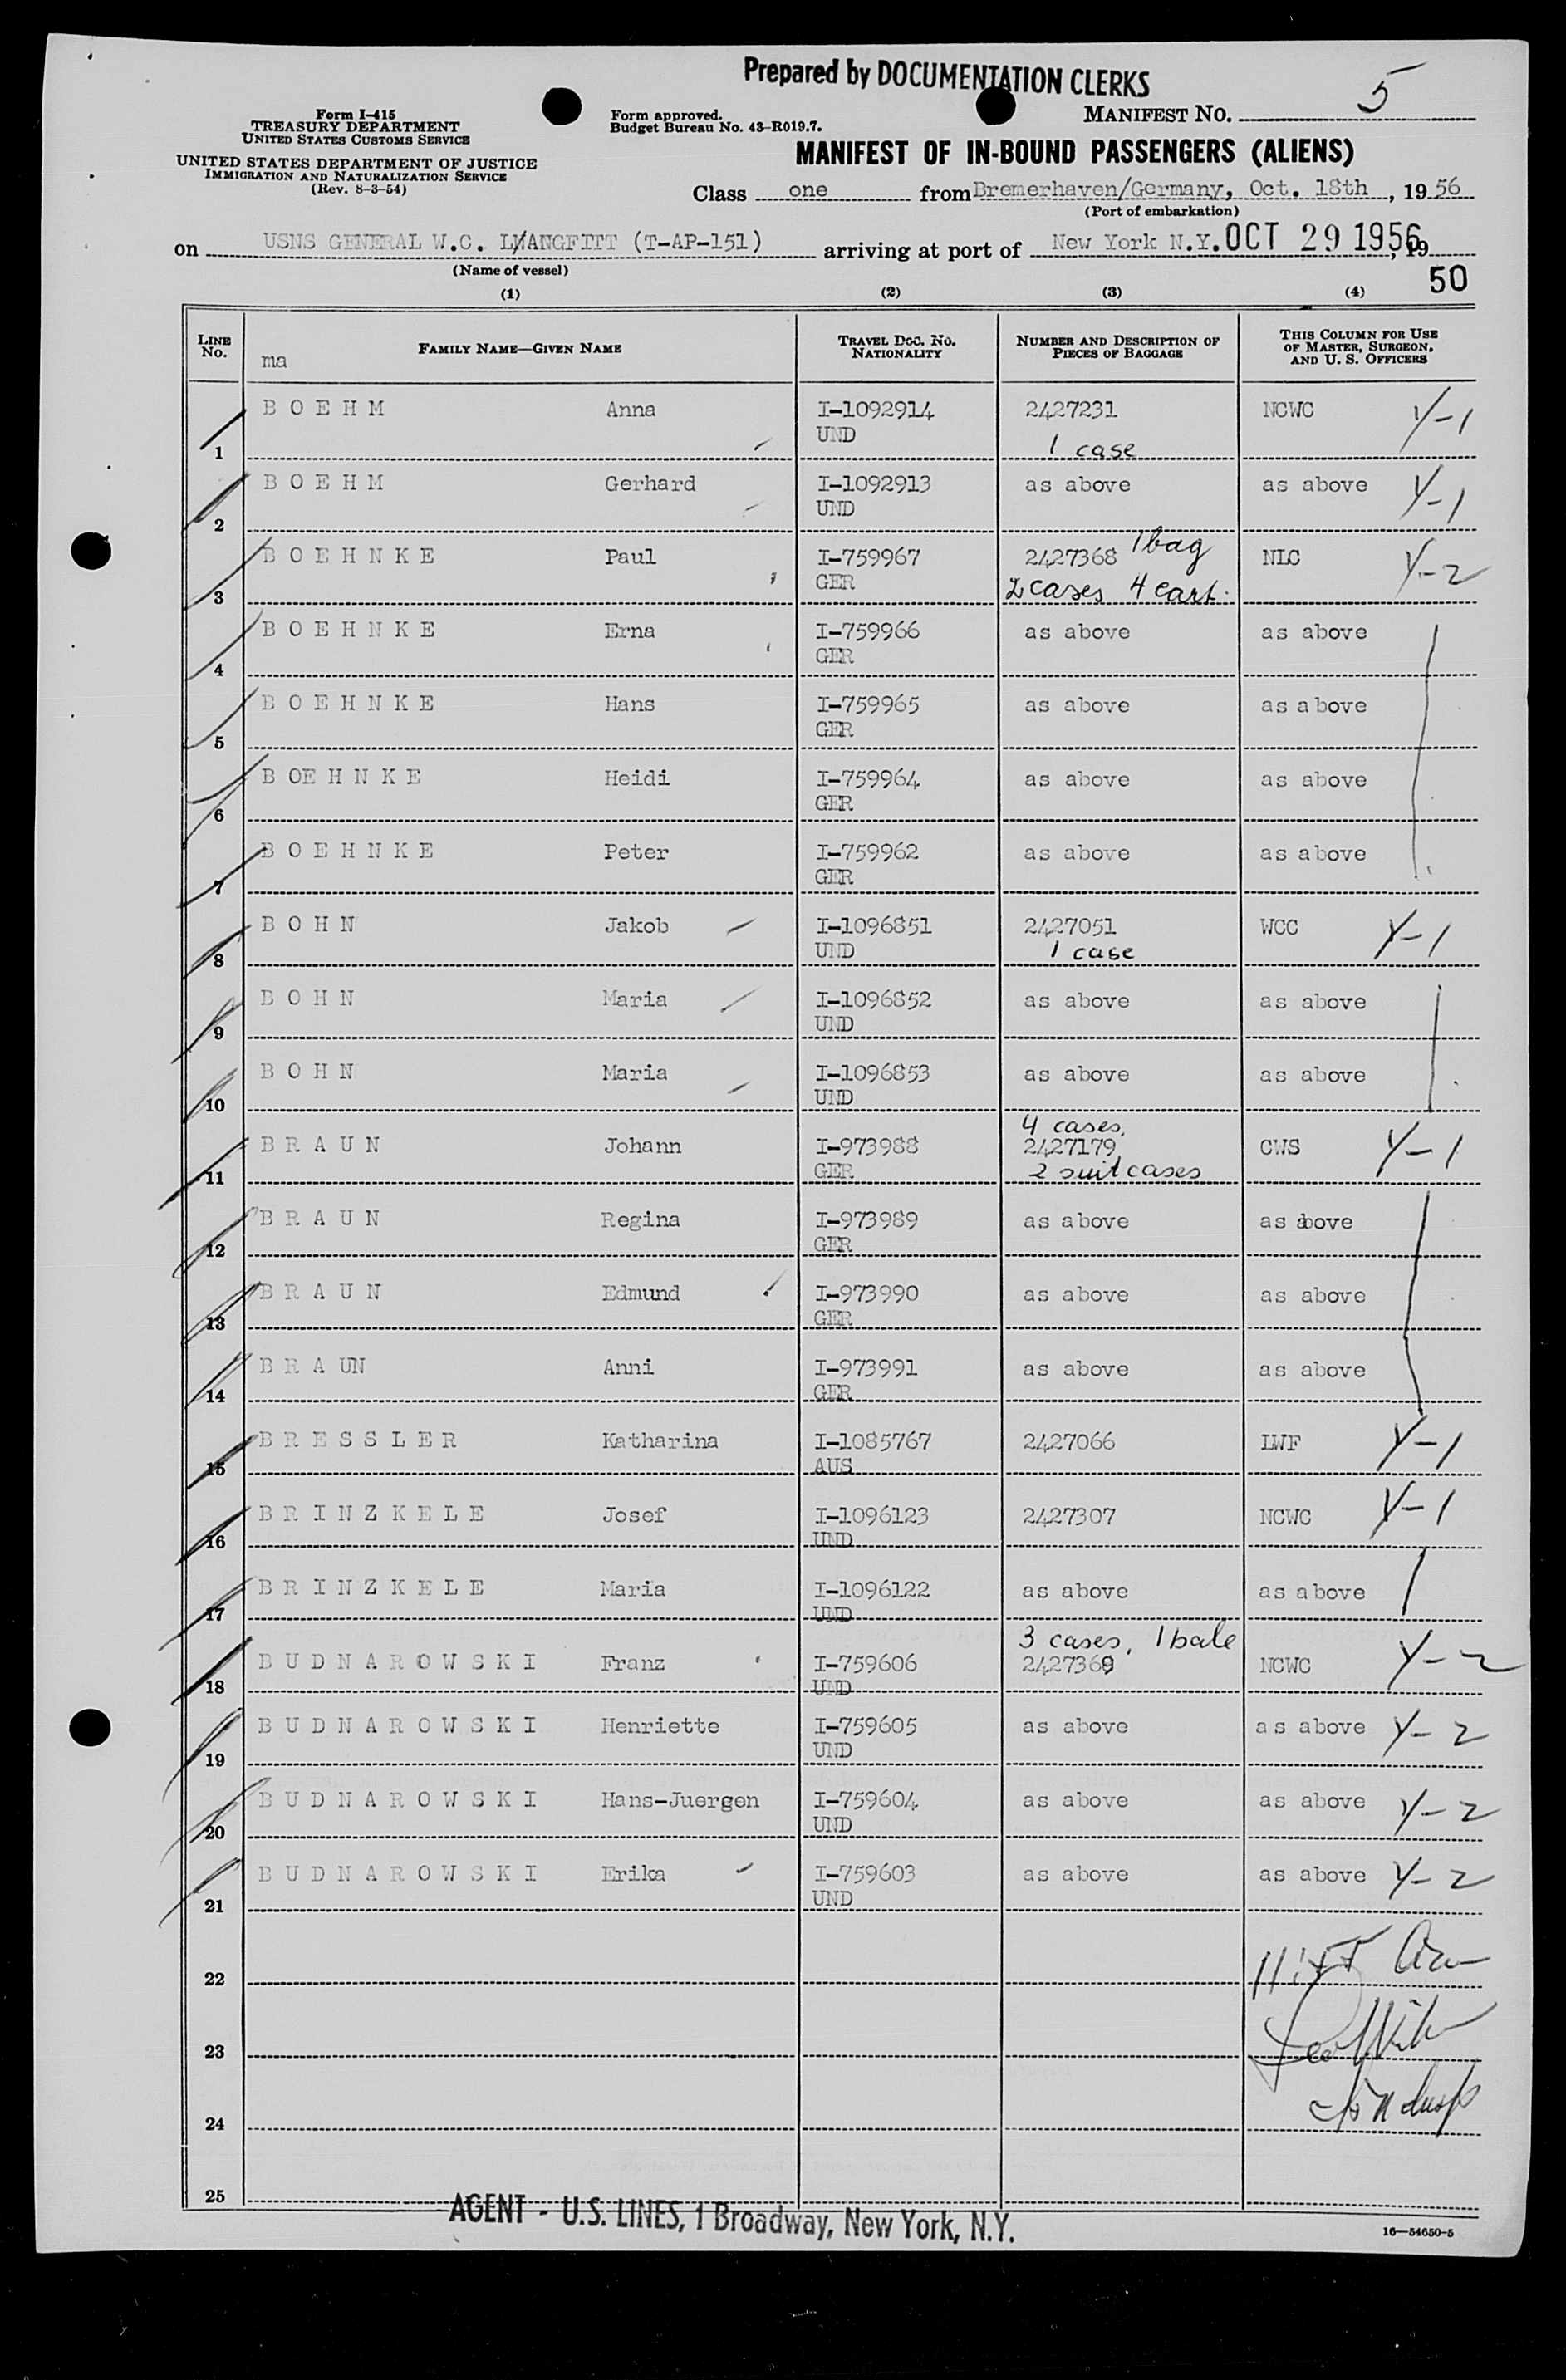 Prepared by DOCUMENTATION CLERKS
Form I-415
TREASURY DEPARTMENT
UNITED STATES CUSTOMS SERVICE
UNITED STATES DEPARTMENT OF JUSTICE
IMMIGRATION AND NATURALIZATION SERVICE
(Rev. 8-3-54)
Form approved.
Budget Bureau No. 43-R019.7.
MANIFEST NO. 5
MANIFEST OF IN-BOUND PASSENGERS (ALIENS)
Class one from Bremerhaven/Germany, Oct. 18th, 1956
(Port of embarkation)
on USNS GENERAL W.C. LANGFITT (T-AP-151) arriving at port of New York N.Y. OCT 29 1956, 19
(Name of vessel)
50
(1) (2) (3) (4)
LINE NO. FAMILY NAME—GIVEN NAME TRAVEL DOC. NO. NATIONALITY NUMBER AND DESCRIPTION OF PIECES OF BAGGAGE THIS COLUMN FOR USE OF MASTER, SURGEON, AND U. S. OFFICERS
ma
B O E H M Anna I-1092914 2427231 NCWC Y-1
1 UND 1 case
B O E H M Gerhard I-1092913 as above as above Y-1
2 UND
1 bag
B O E H N K E Paul I-759967 2427368 NLC Y-2
3 GER 2 cases 4 cart.
B O E H N K E Erna I-759966 as above as above
4 GER
B O E H N K E Hans I-759965 as above as above
5 GER
B OE H N K E Heidi I-759964 as above as above
6 GER
B O E H N K E Peter I-759962 as above as above
7 GER
B O H N Jakob I-1096851 2427051 WCC Y-1
8 UND 1 case
B O H N Maria I-1096852 as above as above
9 UND
B O H N Maria I-1096853 as above as above
10 UND
4 cases,
B R A U N Johann I-973988 2427179 CWS Y-1
11 GER 2 suitcases
B R A U N Regina I-973989 as above as above
12 GER
B R A U N Edmund I-973990 as above as above
13 GER
B R A UN Anni I-973991 as above as above
14 GER
B R E S S L E R Katharina I-1085767 2427066 LWF Y-1
15 AUS
B R I N Z K E L E Josef I-1096123 2427307 NCWC Y-1
16 UND
B R I N Z K E L E Maria I-1096122 as above as above
17 UND
3 cases, 1 bale
B U D N A R O W S K I Franz I-759606 2427369 NCWC Y-2
18 UND
B U D N A R O W S K I Henriette I-759605 as above as above Y-2
19 UND
B U D N A R O W S K I Hans-Juergen I-759604 as above as above Y-2
20 UND
B U D N A R O W S K I Erika I-759603 as above as above Y-2
21 UND
22
23
24
25
AGENT - U.S. LINES, 1 Broadway, New York, N.Y.
16—54650-5